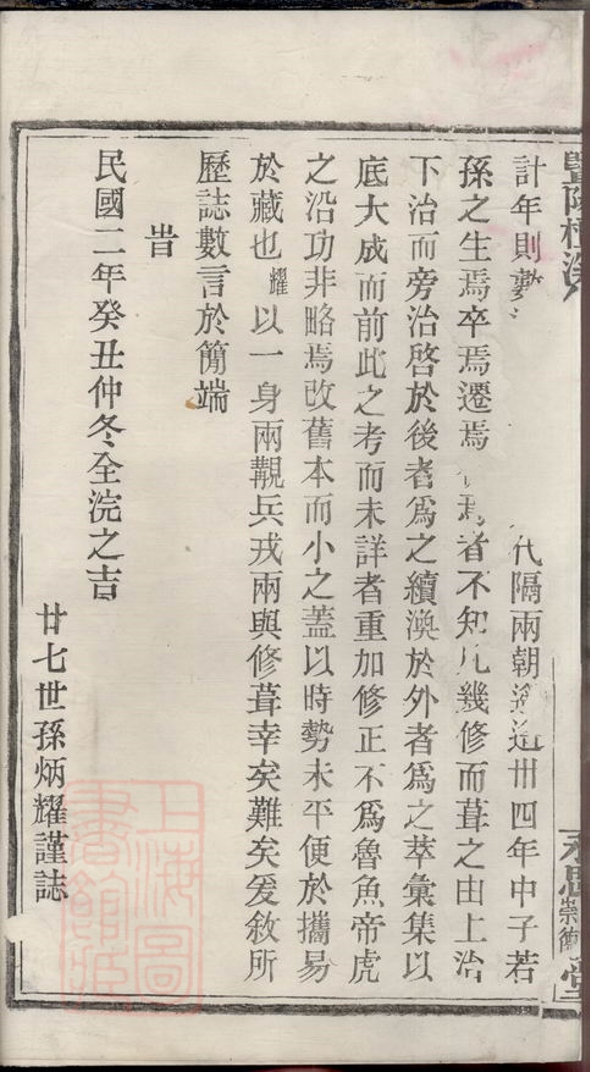 計年則數代隔兩朝卅四年中子若
孫之生焉卒焉遷焉焉者不知凡幾修而葺之由上治
下治而旁治啓於後者爲之續渙於外者爲之萃彙集以
底大成而前此之考而未詳者重加修正不爲魯魚帝虎
之沿功非略焉改舊本而小之蓋以時勢未平便於攜易
於藏也耀以一身兩覩兵戎兩與修葺幸矣難矣爰敘所
歷誌數言於簡端
旹
民國二年癸丑仲冬全浣之吉
廿七世孫炳耀謹誌
永思崇衛堂
上海圖書館藏